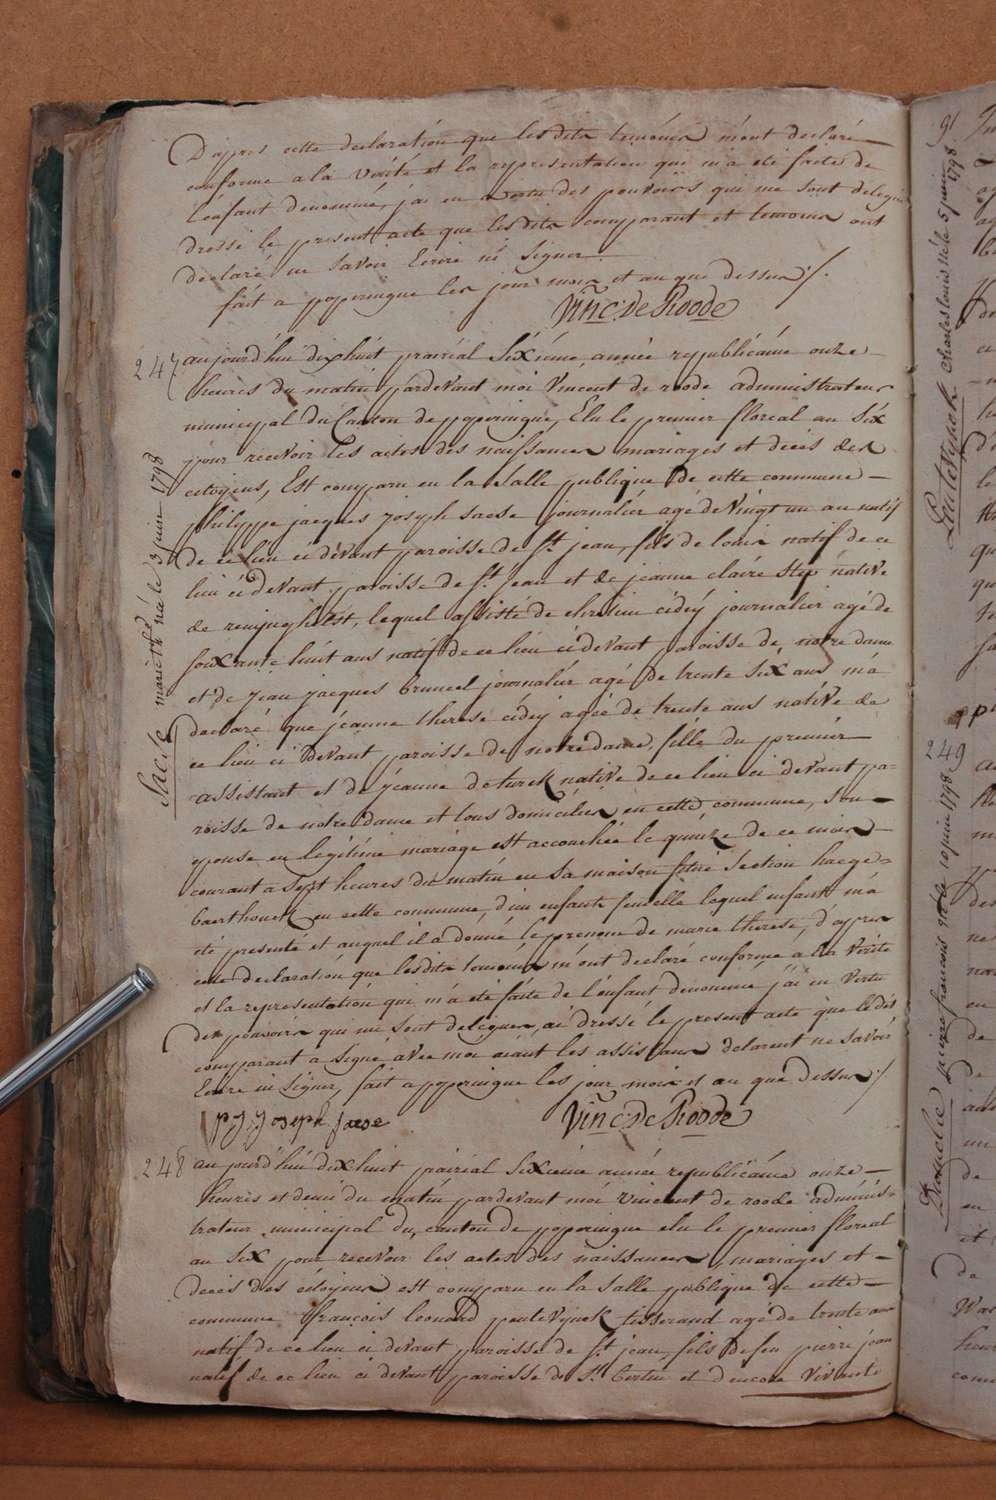 D'apres cette declaration que lesdits temoins m'ont declaré
conforme a la Vérité et la representation qui m'a été faite de
l'enfant denommé, j'ai en vertu des pouvoirs qui me sont delegués
dressé le present acte que lesdits comparant et temoins ont
declaré ne savoir Ecrire ni signer
fait a poperingue les jour mois et an que dessus ./.
Vinc: De Roode
247 aujourd'hui dixhuit prairial Sixiéme année republicaine onze
heures du matin pardevant moi Vincent de roode administrateur
municipal du Canton de poperingue, Elu le premier floreal an Six
pour recevoir les actes des naissances mariages et decès des
citoyens, Est comparu en la Salle publique de cette commune -
philippe jacques joseph saese journalier agé de Vingt un an natif
de ce lieu ci devant paroisse de St. jean, fils de louis natif de ce
lieu ci devant paroisse de St. jean et de jeanne claire native
de reninghelst, lequel assisté de cidey journalier agé de
soixante huit ans natif de ce lieu ci devant paroisse de notre dame
et de jean jacques bruneel journalier agé de trente six ans m'a
declaré que jeanne therese cidey agée de trente ans native de
ce lieu ci devant paroisse de notre dame, fille du premier
assistant et de jeanne deturck native de ce lieu ci devant pa-
roisse de notre dame et tous domiciliés en cette commune, son
epouse en legitime mariage est accouchée le quinze de ce mois
courant a Sept heures du matin en Sa maison Section haege-
baerthouck en cette commune, d'un enfant femelle lequel enfant m'a
été presenté et auquel il a donné le prenom de marie therese, d'apres
cette declaration que lesdits temoins m'ont declaré conforme a la Verité
et la representation qui m'a été faite de l'enfant denommé j'ai en Vertu
des pouvoirs qui me sont delegués, ai dressé le present acte que ledit
comparant a Signé avec moi aiant les assistans declarent ne savoir
Ecrire ni signer, fait a poperingue les jour mois et an que dessus ./
P J Joseph Saese Vinc: De Roode
248 aujourd'hui dixhuit prairial Sixieme année republicaine onze -
heures et demi du matin pardevant moi vincent de roode adminis-
trateur municipal du canton de poperingue elu le premier floreal
an Six pour recevoir les actes des naissances, mariages et -
decès des citoyens est comparu en la salle publique de cette -
commune françois leonard peutevynck tisserand agé de trente ans
natif de ce lieu ci devant paroisse de St. jean, fils de feu pierre jean
natif de ce lieu ci devant paroisse de St. Bertin et d'encore Vivante
Sacle marie th. née le 3 juin 1798
91
Peutevynck charles louis né le 5 juin 1798
249
pierre francois né le 10 juin 1798